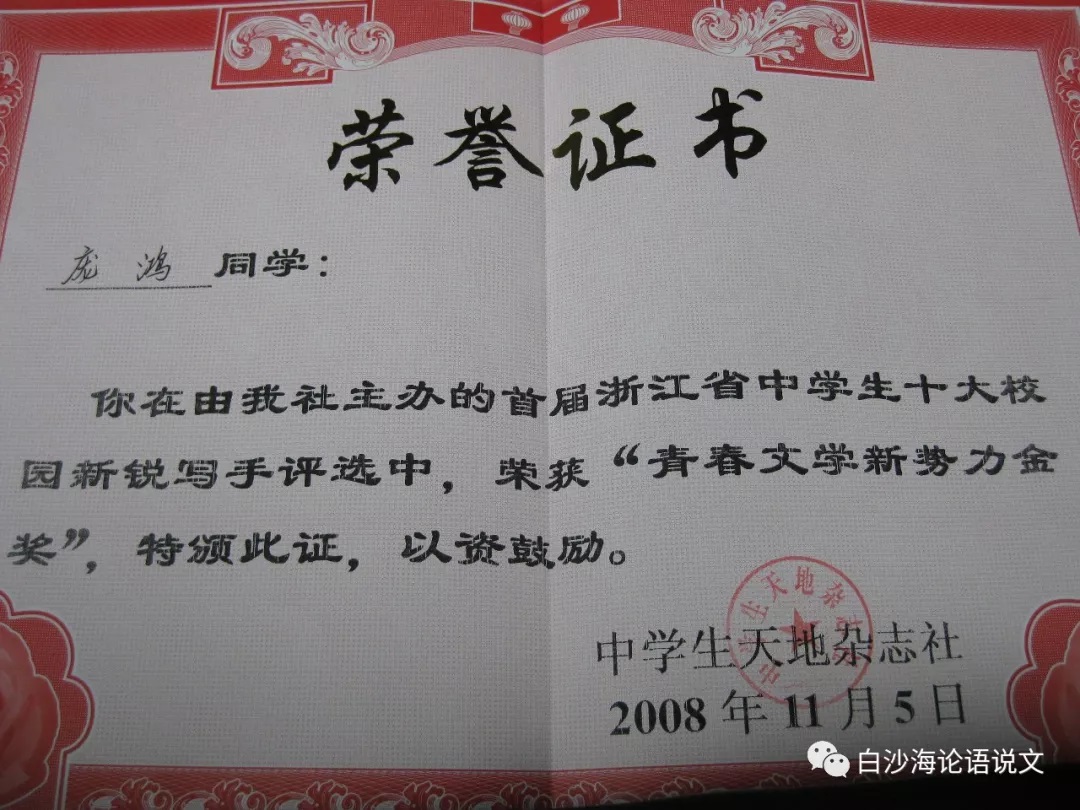 荣誉证书
庞 鸿 同学：
你在由我社主办的首届浙江省中学生十大校
园新锐写手评选中，荣获“青春文学新势力金
奖”，特颁此证，以资鼓励。
中学生天地杂志社
中学生天地杂志社
2008年11月5日
白沙海论语说文